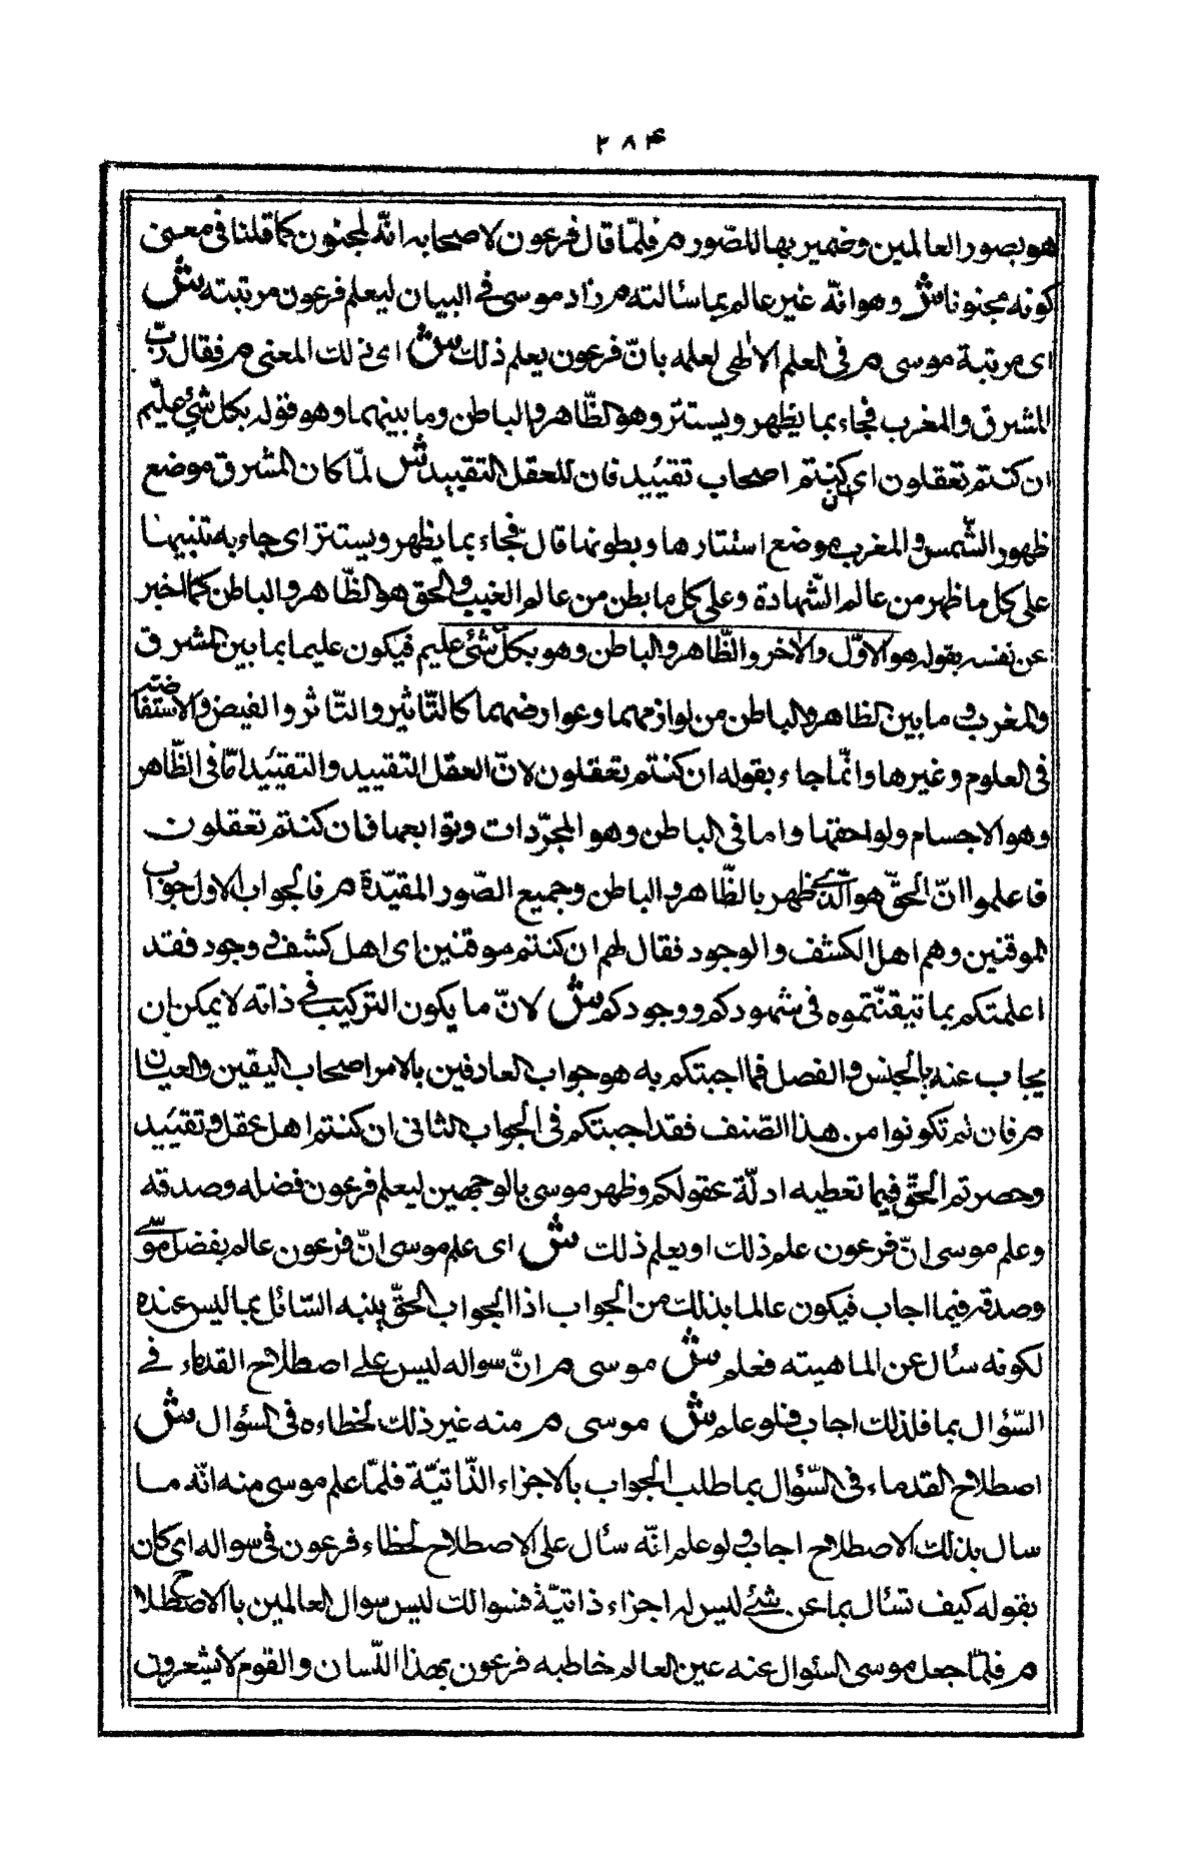 ۲۸۴
هو بصور العالمين وضمير بها للصّور م فلمّا قال فرعون لاصحابه انّه لمجنون كما قلنا فى معنى
كونه مجنونا ش وهو انّه غير عالم بما سألته م زاد موسى فى البيان ليعلم فرعون مرتبته ش
اى مرتبة موسى م فى العلم الالٰهى لعلمه بانّ فرعون يعلم ذلك ش اى ذلك المعنى م فقال ربّ
المشرق والمغرب فجاء بما يظهر ويستتر وهو الظّاهر والباطن وما بينهما وهو قوله بكل شئ عليم
ان كنتم تعقلون اى ان كنتم اصحاب تقئيد فان للعقل التقييد ش لمّا كان المشرق موضع
ظهور الشّمس والمغرب موضع استتارها وبطونها قال فجاء بما يظهر ويستتر اى جاء به تنبيها
على كل ما ظهر من عالم الشّهادة وعلى كل ما بطن من عالم الغيب والحق هو الظّاهر والباطن كما اخبر
عن نفسه بقوله هو الاوّل والآخر والظّاهر والباطن وهو بكلّ شئ عليم فيكون عليما بما بين المشرق
والمغرب وما بين الظاهر والباطن من لوازمهما وعوارضهما كالتّاثير والتّاثر والفيض والاستفاضة
فى العلوم وغيرها وانّما جاء بقوله ان كنتم تعقلون لانّ العقل التقييد والتقئيد امّا فى الظّاهر
وهو الاجسام ولواحقها واما فى الباطن وهو المجرّدات وتوابعها فان كنتم تعقلون
فاعلموا انّ الحقّ هو الّذى ظهر بالظّاهر والباطن وجميع الصّور المقيّدة م فالجواب الاول جواب
الموقنين وهم اهل الكشف والوجود فقال لهم ان كنتم موقنين اى اهل كشف ووجود فقد
اعلمتكم بما تيقنّتموه فى شهودكم ووجودكم ش لانّ ما يكون التركيب فى ذاته لا يمكن ان
يجاب عنه بالجنس والفصل فما اجبتكم به هو جواب العارفين بالامر اصحاب اليقين والعيان
م فان لم تكونوا من هذا الصّنف فقد اجبتكم فى الجواب الثانى ان كنتم اهل عقل وتقئيد
وحصرتم الحقّ فيما تعطيه ادلّة عقولكم وظهر موسى بالوجهين ليعلم فرعون فضله وصدقه
وعلم موسى انّ فرعون علم ذلك او يعلم ذلك ش اى علم موسى انّ فرعون عالم بفضل موسى
وصدقه فيما اجاب فيكون عالما بذلك من الجواب اذ الجواب الحقّ ينبه السّائل بما ليس عنده
لكونه سئال عن الماهيته فعلم ش موسى م انّ سواله ليس على اصطلاح القدماء فى
السّؤال بما فلذلك اجاب فلو علم ش موسى م منه غير ذلك لخطاءه فى السؤال ش
اصطلاح القدماء فى السّؤال بما طلب الجواب بالاجزاء الذّاتيّة فلمّا علم موسى منه انّه ما
سال بذلك الاصطلاح اجاب ولو علم انّه سئال على الاصطلاح لخطاء فرعون فى سواله اى كان
بقوله كيف تسئال بما عن شئ ليس له اجزاء ذاتيّة فسوالك ليس سوال العالمين بالاصطلاح
م فلمّا جعل موسى السئوال عنه عين العالم خاطبه فرعون بهذا اللّسان والقوم لا يشعرون